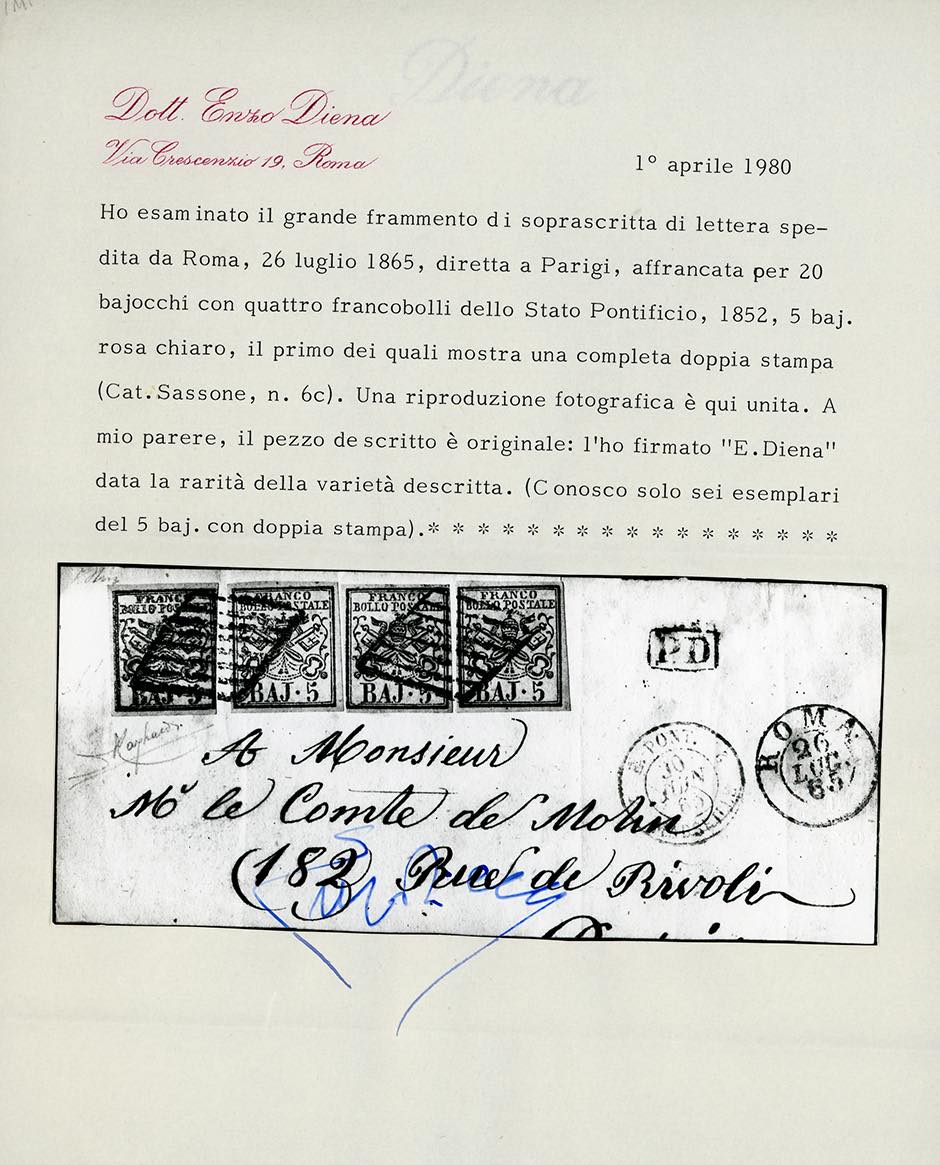 Diena
Dott. Enzo Diena
Via Crescenzio 19, Roma
1° aprile 1980
Ho esaminato il grande frammento di soprascritta di lettera spe-
dita da Roma, 26 luglio 1865, diretta a Parigi, affrancata per 20
bajocchi con quattro francobolli dello Stato Pontificio, 1852, 5 baj.
rosa chiaro, il primo dei quali mostra una completa doppia stampa
(Cat.Sassone, n. 6c). Una riproduzione fotografica è qui unita. A
mio parere, il pezzo descritto è originale: l'ho firmato "E.Diena"
data la rarità della varietà descritta. (Conosco solo sei esemplari
del 5 baj. con doppia stampa).* * * * * * * * * * * * * * * * *
FRANCO
BOLLO POSTALE
BAJ·5
FRANCO
BOLLO POSTALE
BAJ·5
FRANCO
BOLLO POSTALE
BAJ·5
FRANCO
BOLLO POSTALE
BAJ·5
PD
E. PONT.
ROMA
26
LUG.
65
A Monsieur
Mr le Comte de
(182) Rue de Rivoli